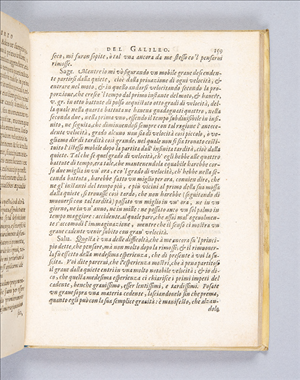 DEL GALILEO. 159
fero, mi furon sopite, ò tal' una ancora da me stesso co'l pensarvi
rimosse.
Sagr. Mentre io mi vò figurando un mobile grave descendente
partirsi dalla quiete, cioè dalla privazione di ogni velocità, &
entrare nel moto, & in quello andarsi velocitando secondo la pro-
porzione, che cresce 'l tempo dal primo instante del moto, & havere,
v. gr. in otto battute di polso acquistato otto gradi di velocità, del-
la quale nella quarta battuta ne haveva guadagnati quattro, nella
seconda due, nella prima uno, essendo il tempo subdivisibile in infi-
nito, ne seguita, che diminuendosi sempre con tal ragione l'antece-
dente velocità, grado alcuno non sia di velocità così piccolo, ò ve-
gliamo dir di tardità così grande, nel quale non si sia trovato costi-
tuito l'istesso mobile dopo la partita dall' infinita tardità, cioè dalla
quiete. Tal che se quel grado di velocità, ch' egli hebbe alle quattro
battute di tempo, era tale, che mantenendola equabile harebbe cor-
so due miglia in un' ora, e co'l grado di velocità, ch' hebbe nella se-
conda battuta, harebbe fatto un miglio per ora, convien dire, che
ne gl' instanti del tempo più, e più vicini al primo della sua mossa
dalla quiete si trovasse così tardo, che non harebbe (seguitando di
muoversi con tal tardità) passato un miglio in un' ora, ne in un
giorno, ne in un' anno, ne in mille: ne passato anco un sol palmo in
tempo maggiore: accidente, al quale pare, che assai mal' agevolmen-
te s' accomodi l' immaginazione, mentre che il senso ci mostra un
grave cadente venir subito con gran' velocità.
Salu. Questa è una delle difficoltà, che à me ancora su 'l princi-
pio dette, che pensare, mà non molto dopo la rimossi; & il rimuover-
la fù effetto della medesima esperienza, che di presente à voi la su-
scita. Voi dite parervi, che l'esperienza mostri, che à pena partitosi
il grave dalla quiete entri in una molto notabile velocità: & io di-
co, che quella medesima esperienza ci chiarisce i primi impeti del
cadente, benche gravissimo, esser lentissimi, e tardissimi. Posate
un grave sopra una materia cedente, lasciandovelo sin che prema,
quanto egli può con la sua semplice gravità: è manifesto, che alzan-
dolo